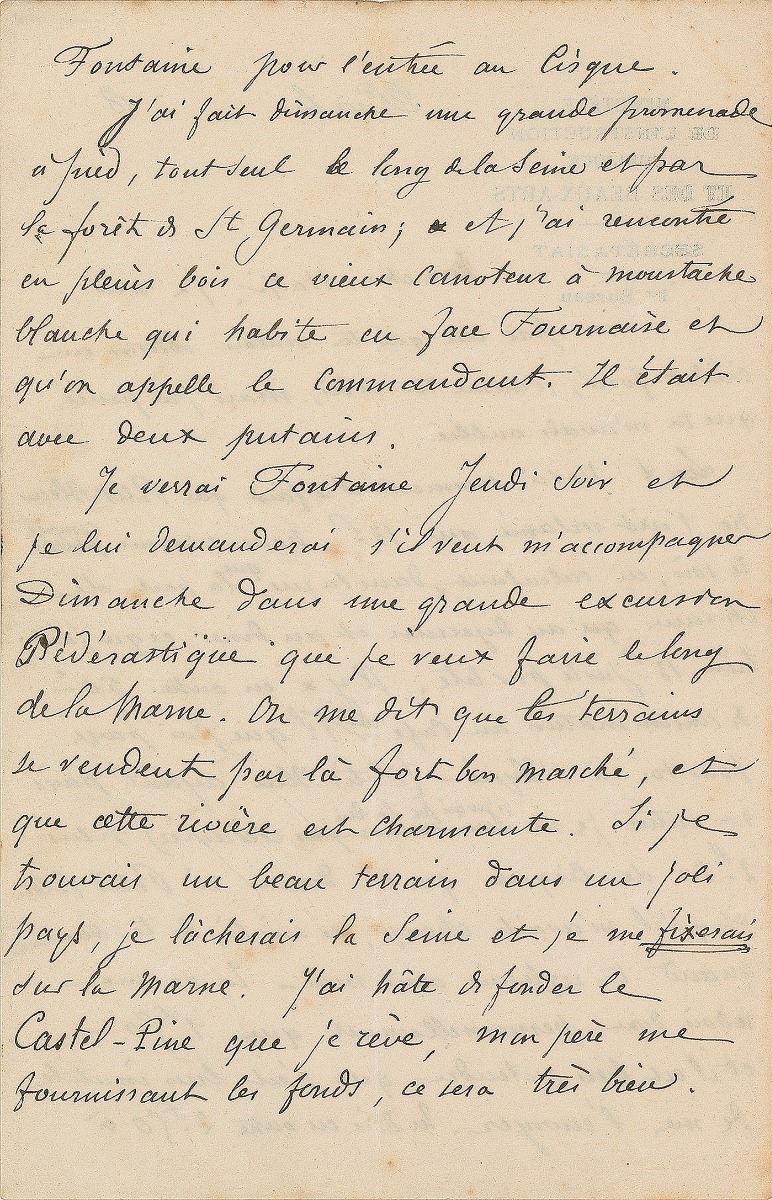 Fontaine pour l'entrée au Cisque.
J'ai fait dimanche une grande promenade
à pied, tout seul le long de la Seine et par
la forêt de St Germain; et j'ai rencontré
en pleins bois ce vieux canoteur à moustache
blanche qui habite en face Fournaise et
qu'on appelle le Commandant. Il était
avec deux putains.
Je verrai Fontaine Jeudi soir et
je lui demanderai s'il veut m'accompagner
Dimanche dans une grande excursion
Pédérastique que je veux faire le long
de la Marne. On me dit que les terrains
se vendent par là fort bon marché, et
que cette rivière est charmante. Si je
trouvais un beau terrain dans un joli
pays, je lâcherais la Seine et je me fixerais
sur la Marne. J'ai hâte de fonder le
Castel-Pine que je rêve, mon père me
fournissant les fonds, ce sera très bien.
DE L'INSTRUCTION
ET DES BEAUX-ARTS
SECRÉTARIAT
Bureau